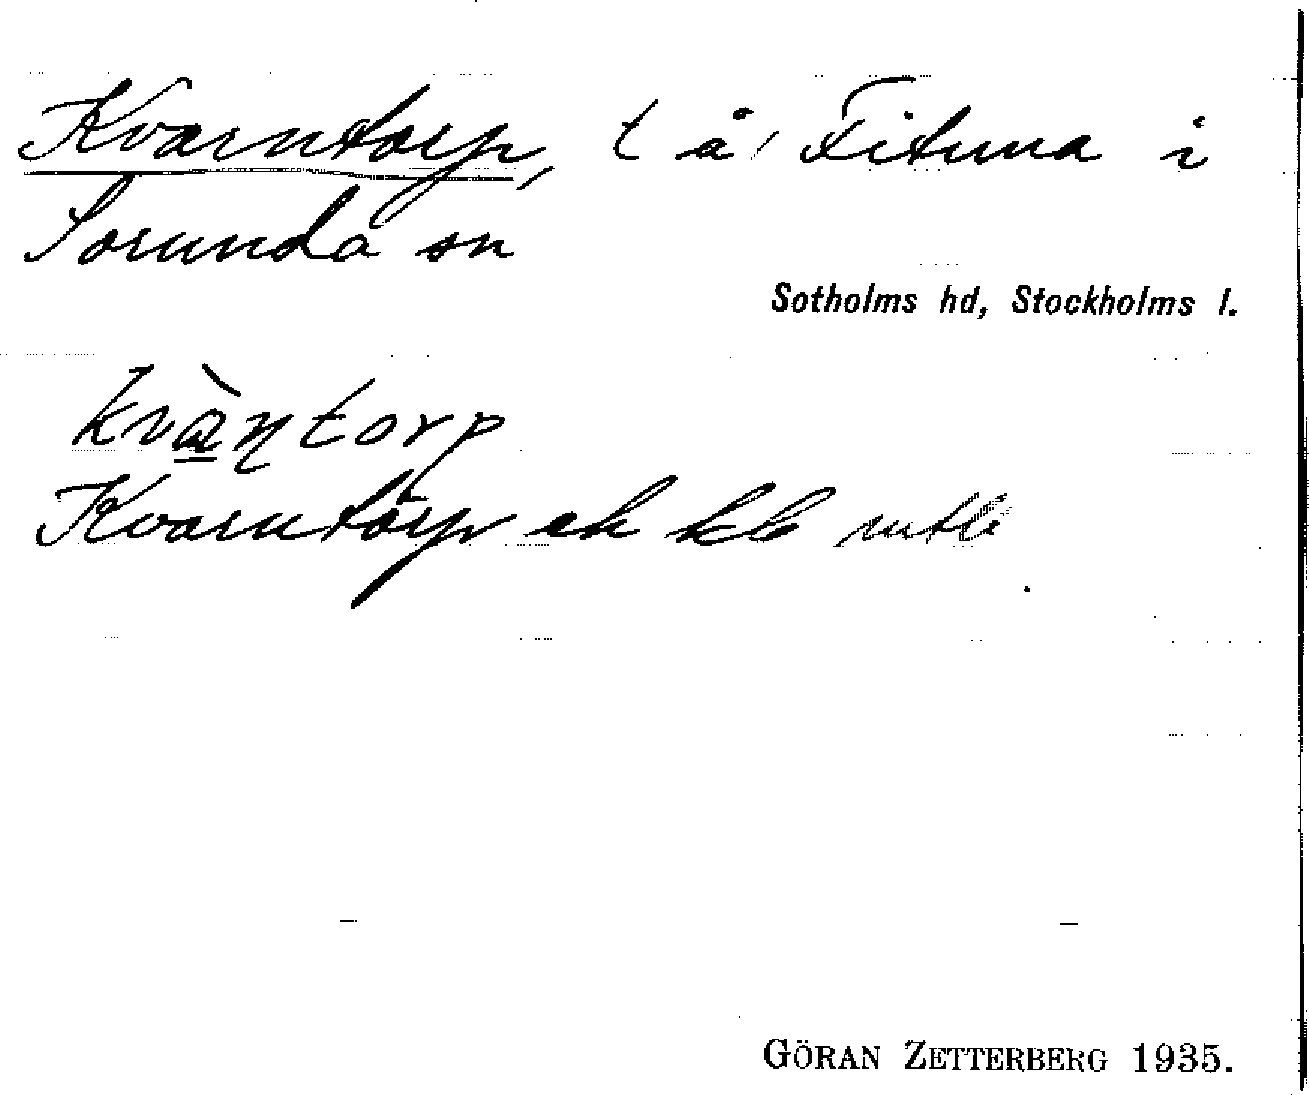 Kvarntorp, t å Fituna i
Sorunda sn
Sotholms hd, Stockholms l.
kvàṉtorp
Kvarntorp ek kb
GÖRAN ZETTERBERG 1935.